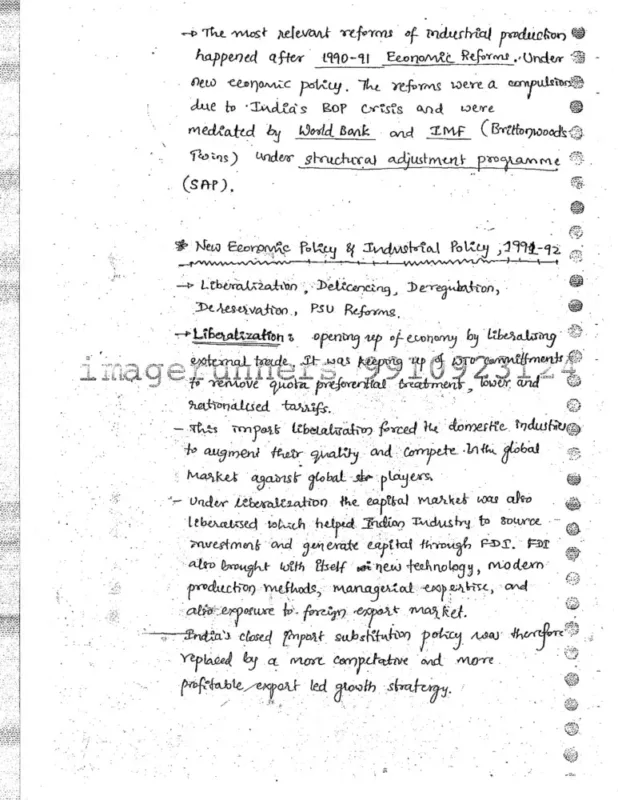 → The most relevant reforms of industrial production
happened after 1990-91 Economic Reforms. Under
new economic policy. The reforms were a compulsion
due to India's BOP Crisis and were
mediated by World Bank and IMF (Brittonwoods
Twins) under structural adjustment programme
(SAP).
* New Economic Policy & Industrial Policy, 1991-92
→ Liberalization, Delicencing, Deregulation,
Dereservation, PSU Reforms.
→ Liberalization: opening up of economy by liberalising
external trade. It was keeping up of WTO commitments
imagerunners 9910923124
to remove quota preferential treatment, lower and
rationalised tarrifs.
- This import liberalisation forced the domestic industries
to augment their quality and compete in the global
Market against global players.
- Under liberalization the capital market was also
liberalised which helped Indian Industry to source
investment and generate capital through FDI. FDI
also brought with itself new technology, modern
production methods, managerial expertise, and
also exposure to foreign export market.
- India's closed import substitution policy was therefore
replaced by a more competative and more
profitable export led growth stratergy.